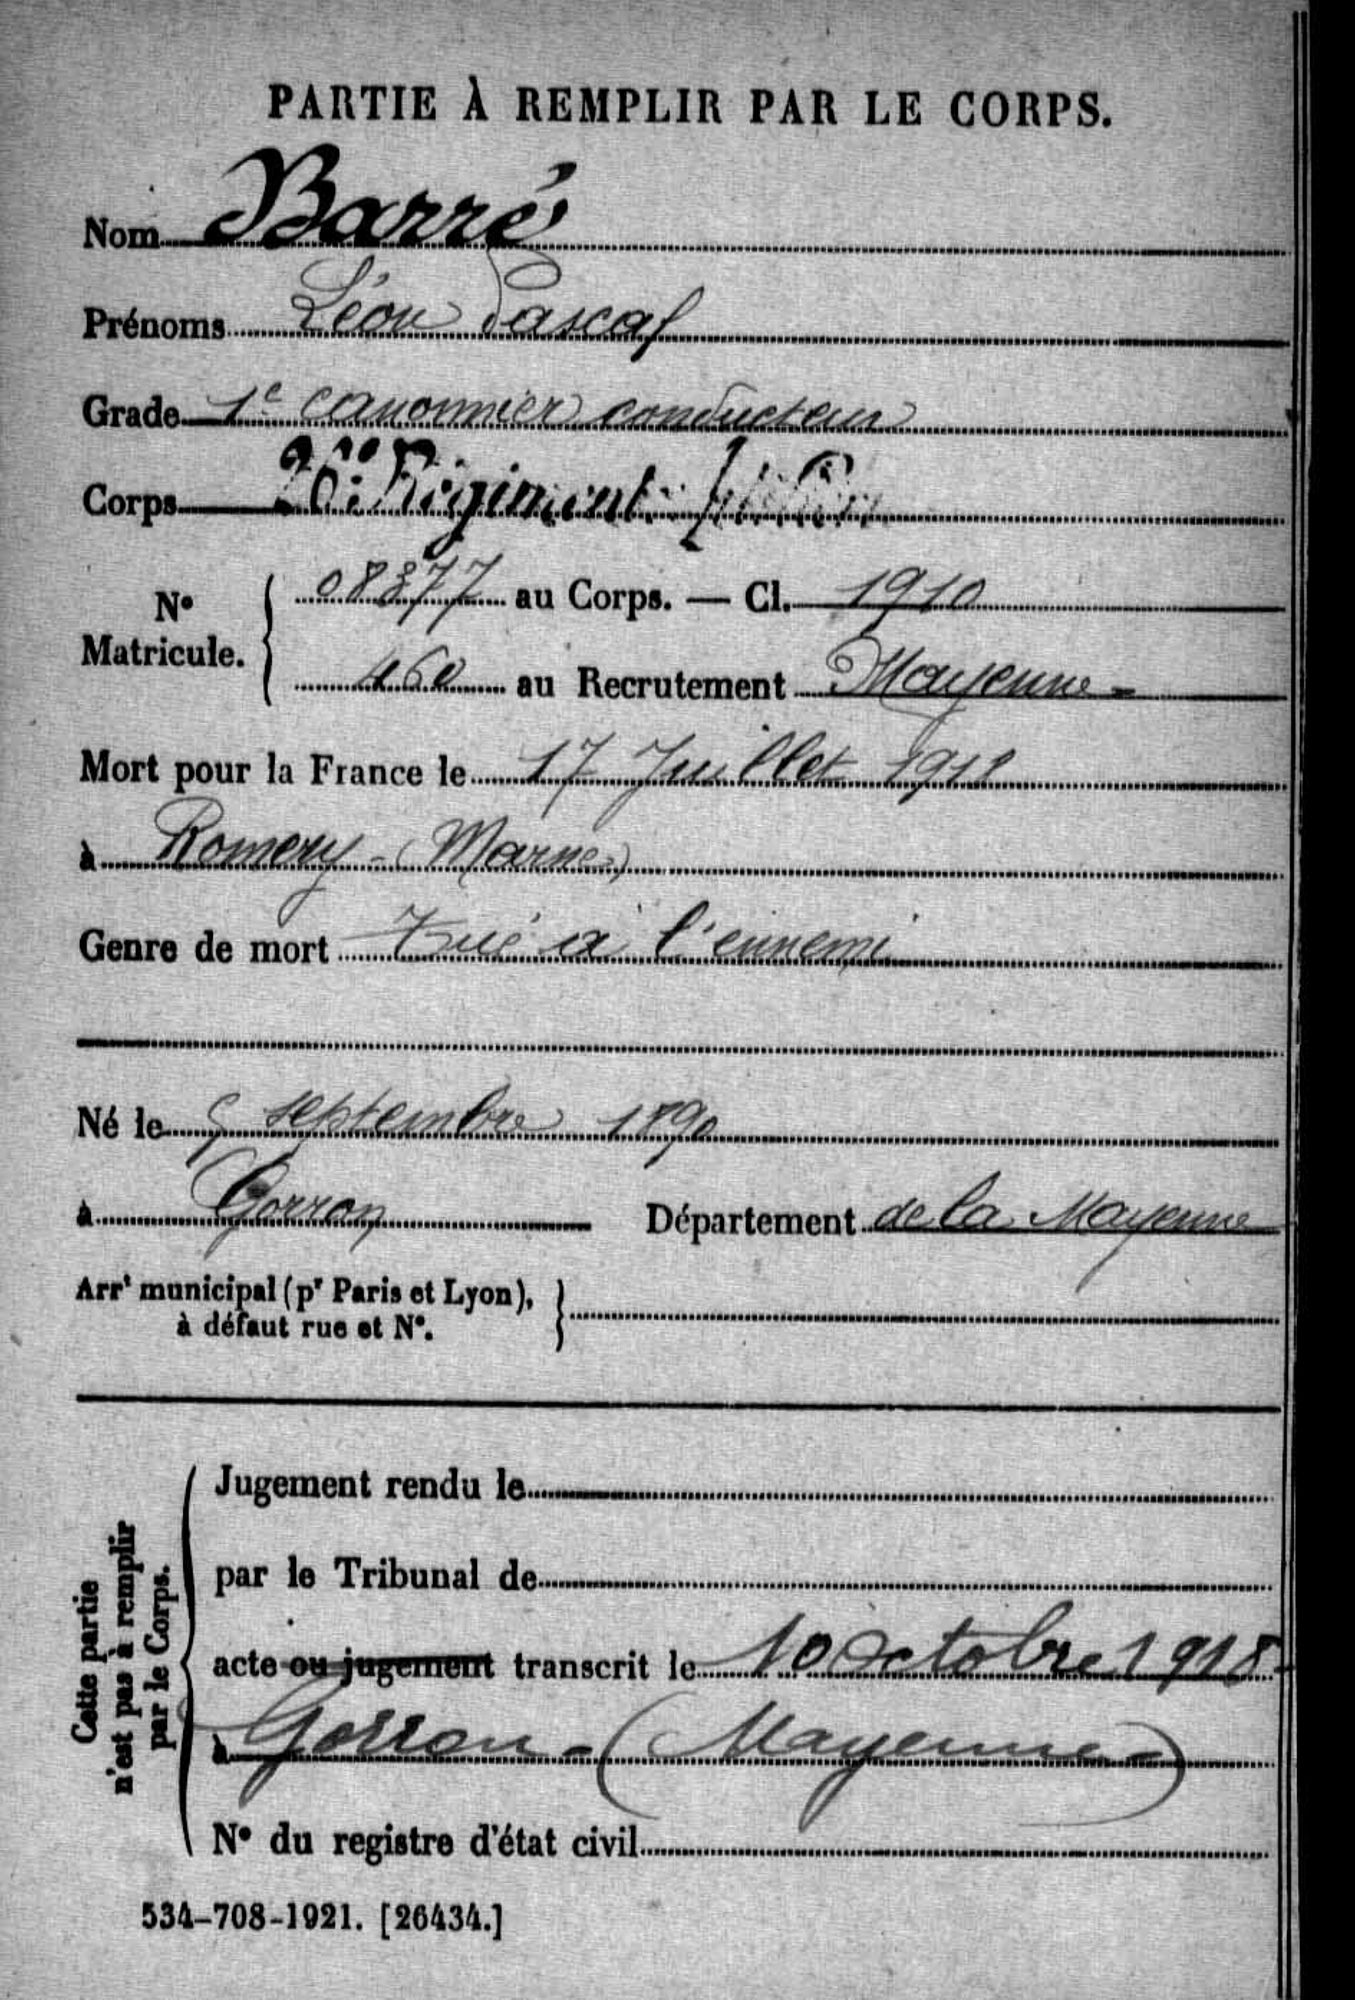 PARTIE À REMPLIR PAR LE CORPS.
Nom Barré
Prénoms Léon Pascal
Grade 1e canonnier conducteur
Corps 26e Régiment
08377 au Corps. — Cl. 1910
N° Matricule.
460 au Recrutement Mayenne
Mort pour la France le 17 Juillet 1918
à Romery - (Marne)
Genre de mort Tué à l'ennemi
Né le 5 septembre 1890
à Gorron Département de la Mayenne
Arrt municipal (pr Paris et Lyon),
à défaut rue et N°.
Jugement rendu le
par le Tribunal de
acte ou jugement transcrit le 10 Octobre 1918
à Gorron - (Mayenne)
N° du registre d'état civil
Cette partie
n'est pas à remplir
par le Corps.
534-708-1921. [26434.]